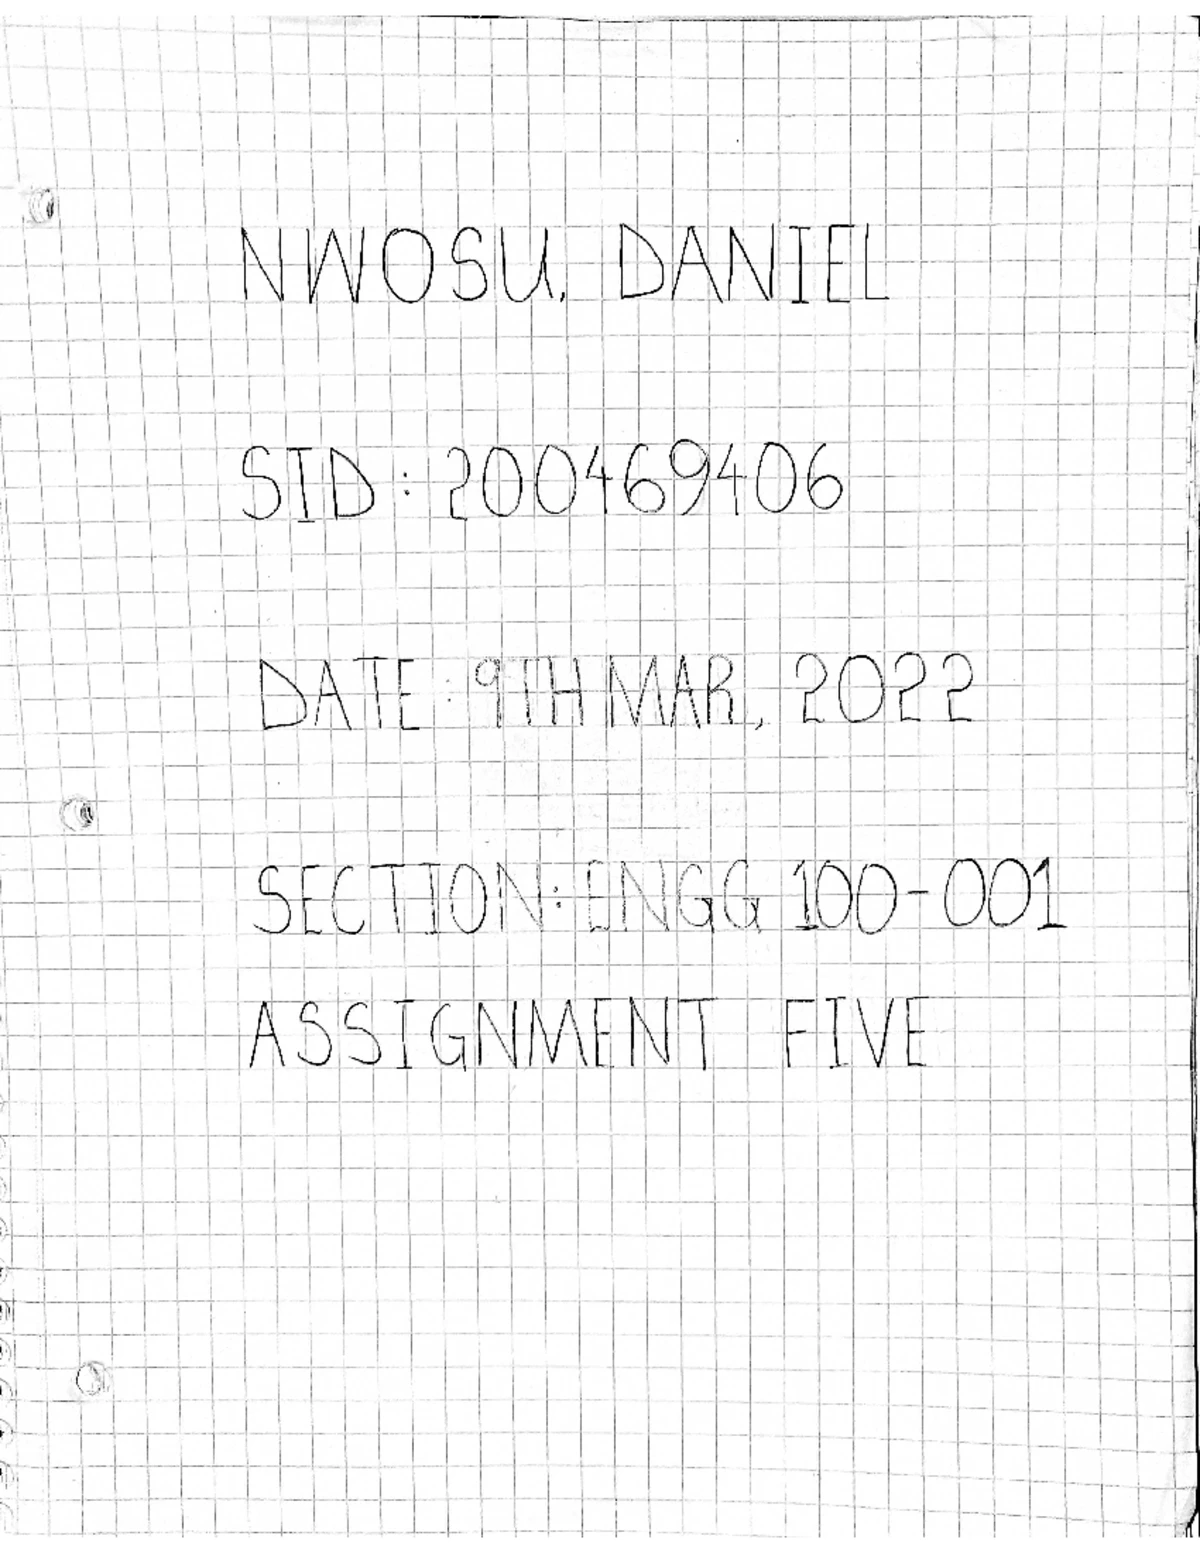 NWOSU, DANIEL
SID: 200469406
DATE: 9TH MAR, 2022
SECTION: ENGG 100-001
ASSIGNMENT FIVE